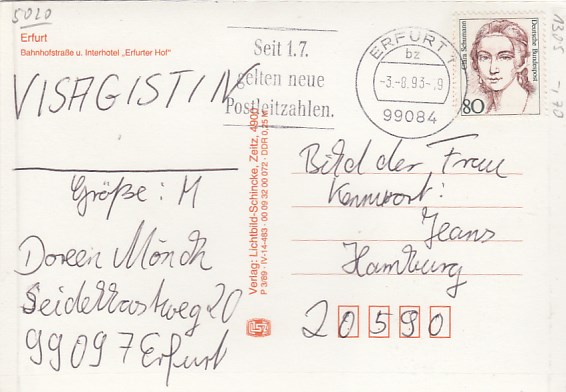 5020
Erfurt
Bahnhofstraße u. Interhotel „Erfurter Hof"
VISAGISTIN
Größe: M
Doreen Mönch
99097 Erfurt
Verlag: Lichtbild-Schincke, Zeitz, 4900
P 3/89 · IV-14-483 · 00 09 32 00 072 · DDR 0,25 M
Seit 1.7.
gelten neue
Postleitzahlen.
ERFURT 1
bz
-3.-8.93-
99084
Clara Schumann
Deutsche Bundespost
80
Bild der Frau
Kennwort:
Jeans
Hamburg
20590